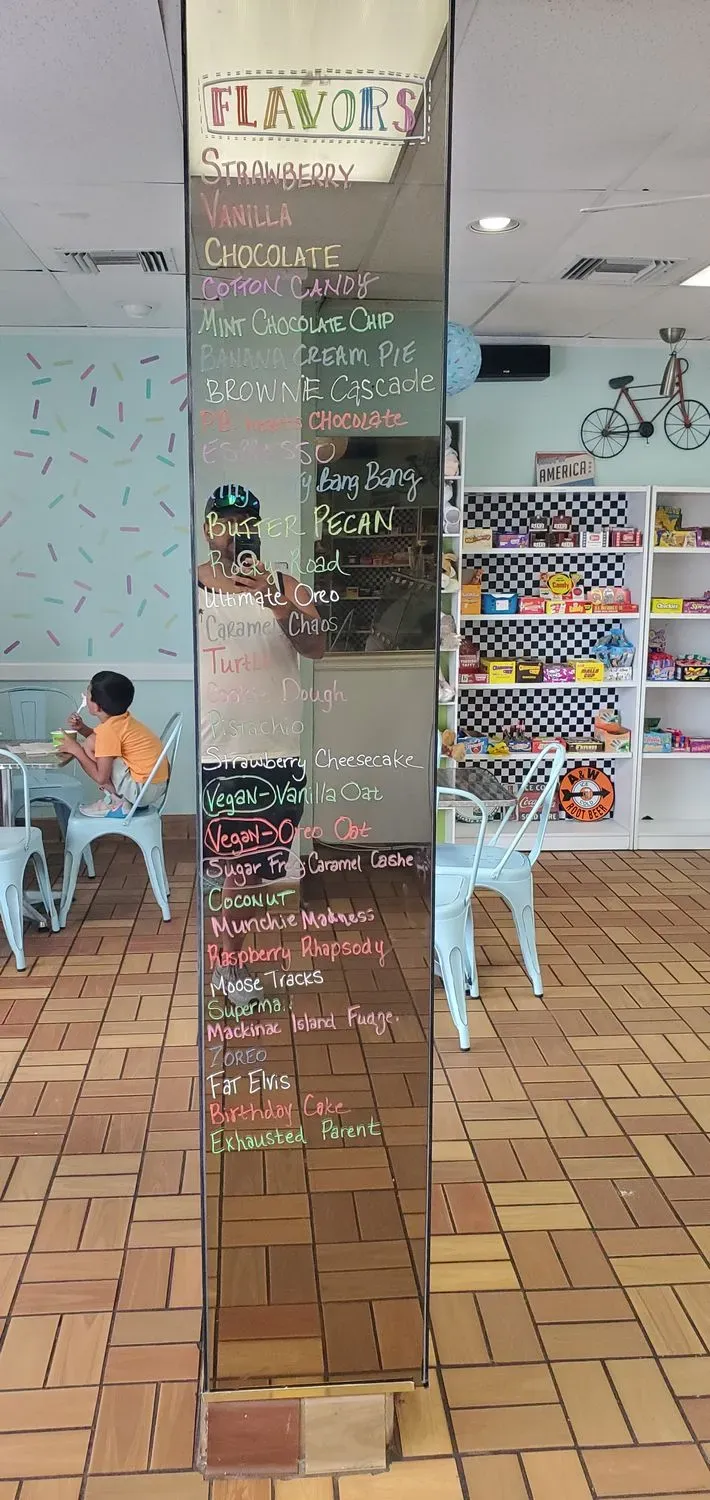 FLAVORS
STRAWBERRY
VANILLA
CHOCOLATE
COTTON CANDY
MINT CHOCOLATE CHIP
BANANA CREAM PIE
BROWNIE Cascade
P.B. meets CHOCOLATE
ESPRESSO
Bang Bang
BUTTER PECAN
Rocky Road
Ultimate Oreo
Caramel Chaos
Turtle
Cookie Dough
Pistachio
Strawberry Cheesecake
Vegan-Vanilla Oat
Vegan-Oreo Oat
Sugar Free Caramel Cashe
COCONUT
Munchie Madness
Raspberry Rhapsody
Moose Tracks
Superman
Mackinac Island Fudge.
ZOREO
Fat Elvis
Birthday Cake
Exhausted Parent
AMERICA
Candy
Coca-Cola
A&W
ROOT BEER